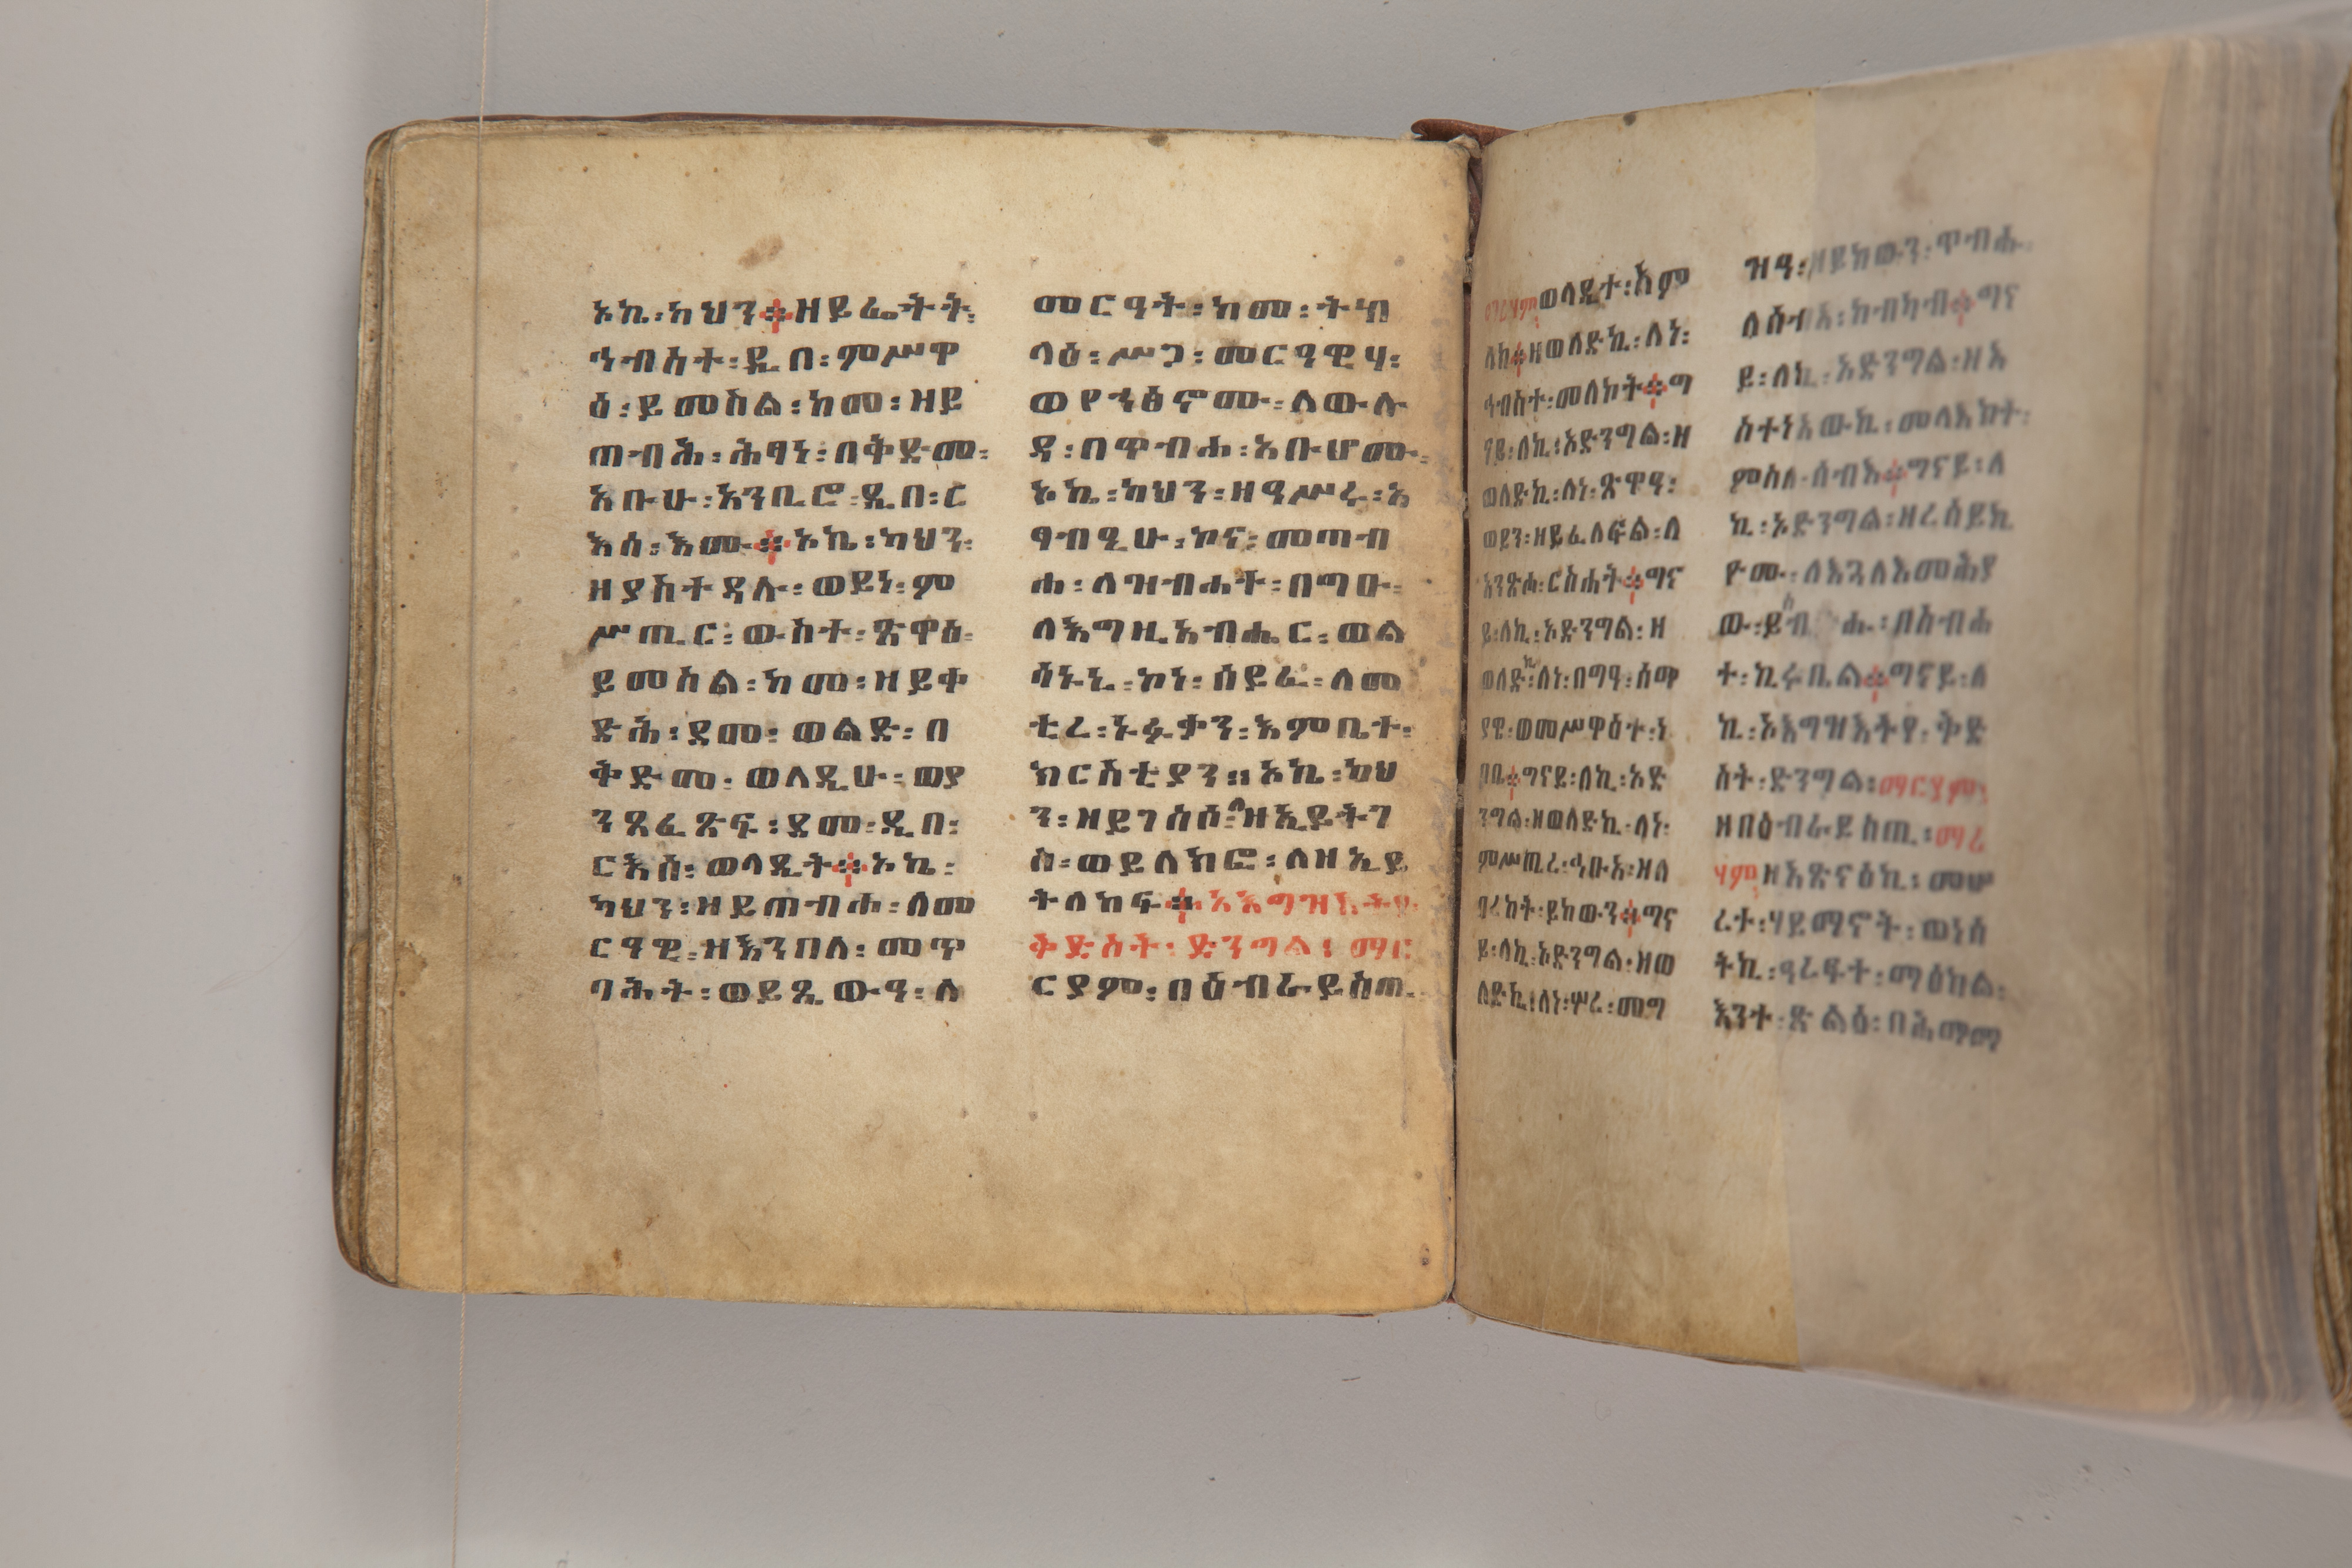 ኦኪ፡ካህን፨ዘይፌትት፡
ኅብስተ፡ዲበ፡ምሥዋ
ዕ፡ይመስል፡ከመ፡ዘይ
ጠብሕ፡ሕፃነ፡በቅድመ፡
አቡሁ፡እንቢሮ፡ዲበ፡ር
እሰ፡እሙ፨ኦኪ፡ካህን፡
ዘያስተዳሉ፡ወይነ፡ም
ሥጢር፡ውስተ፡ጽዋዕ፡
ይመስል፡ከመ፡ዘይቀ
ድሕ፡ደመ፡ወልድ፡በ
ቅድመ፡ወላዲሁ፡ወያ
ንጸፈጽፍ፡ደመ፡ዲበ፡
ርእሰ፡ወላዲት፨ኦኪ፡
ካህን፡ዘይጠብሐ፡ለመ
ርዓዊ፡ዘእንበለ፡መጥ
ባሕት፡ወይጺውዓ፡ለ
መርዓት፡ከመ፡ትኅ
ላዕ፡ሥጋ፡መርዓዊሃ፡
ወየኀፅኖሙ፡ለውሉ
ዳ፡በጥብሐ፡አቡሆሙ፡
ኦኪ፡ካህን፡ዘዓሥሩ፡አ
ፃብዒሁ፡ኮና፡መጣብ
ሐ፡ለዝብሐት፡በግዑ፡
ለእግዚአብሔር፡ወል
ሳኑኒ፡ኮነ፡ሰይፈ፡ለመ
ቲረ፡ኑፋቃን፡እምቤተ፡
ክርስቲያን፡፡ኦኪ፡ካህ
ን፡ዘይገሰሶ፡ለዘኢይትገ
ሰ፡ወይለክፎ፡ለዘኢይ
ትለከፍ፨ኦእግዝእትየ፡
ቅድስት፡ድንግል፡ማር
ርያም፡በዕብራይስጢ
ማሪሃምወላዲተ፡አም
ላክ፨ዘወለድኪ፡ለነ፡
ኅብስተ፡መለኮት፨ግ
ናይ፡ለኪ፡ኦድንግል፡ዘ
ወለድኪ፡ለነ፡ጽዋዓ፡
ወይን፡ዘይፈለፍል፡ለ
እንጽሐ፡ርስሐት፨ግና
ይ፡ለኪ፡ኦድንግል፡ዘ
ወለድኪ፡ለነ፡በግዓ፡ሰማ
ያዊ፡ወመሥዋዕተ፡ነ
ባቢ፨ግናይ፡ለኪ፡ኦድ
ንግል፡ዘወለድኪ፡ለነ፡
ምሥጢረ፡ኅቡአ፡ዘለ
ባረከት፡ይከውን፨ግና
ይ፡ለኪ፡ኦድንግል፡ዘወ
ለድኪ፡ለነ፡ሦረ፡መግ
ዝዓ፡ዘይከውን፡ጥብሐ
ለሰብእ፡ከብካብ፨ግና
ይ፡ለኪ፡ኦድንግል፡ዘአ
ስተነአውኪ፡መላእክተ፡
ምስለ፡ሰብእ፨ግናይ፡ለ
ኪ፡ኦድንግል፡ዘረሰይኪ
ዮሙ፡ለእጓለእመሕያ
ው፡ይኅብሐ፡በስብሐ
ተ፡ኪሩቤል፨ግናይ፡ለ
ኪ፡ኦእግዝእትየ፡ቅድ
ስት፡ድንግል፡ማርያም፡
ዘበዕብራይስጢ፡ማሪ
ሃምዘአጽናዕኪ፡መሠ
ረተ፡ሃይማኖት፡ወነሰ
ትኪ፡ዓረፍተ፡ማዕከል፡
እንተ፡ጽልዕ፡በሕማማ